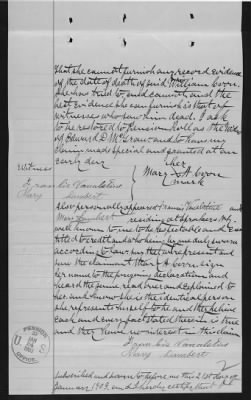 that she cannot furnish any record evidence
of the date of death of said William Coron
She has tried to and cannot and the
best evidence she can furnish is that of
witnesses who saw him dead. I ask
to be restored to Pension Roll as the widow
of Edward D. and to have my
claim made special and granted at an
early day
her
Witness Mary A Coron
mark
Francis
Mary Lambert
Also personally appeared Francis
and Mary Lambert residing at Sprakers N.Y.
well known to me to be respectable and
titled to credit and who being by me duly sworn
according to law say that were present and
saw the claimant Mary A Coron sign
her name to the foregoing declaration and
heard the same read over and explained to
her and know she is the identical person
she represents herself to be and they believe
each and every fact stated therein is true
and they have no interest in this claim
Francis
Mary Lambert
PENSION
OFFICE
U S
JAN
1903
Subscribed and sworn to before me this 21st day of
January 1903 and I hereby certify that